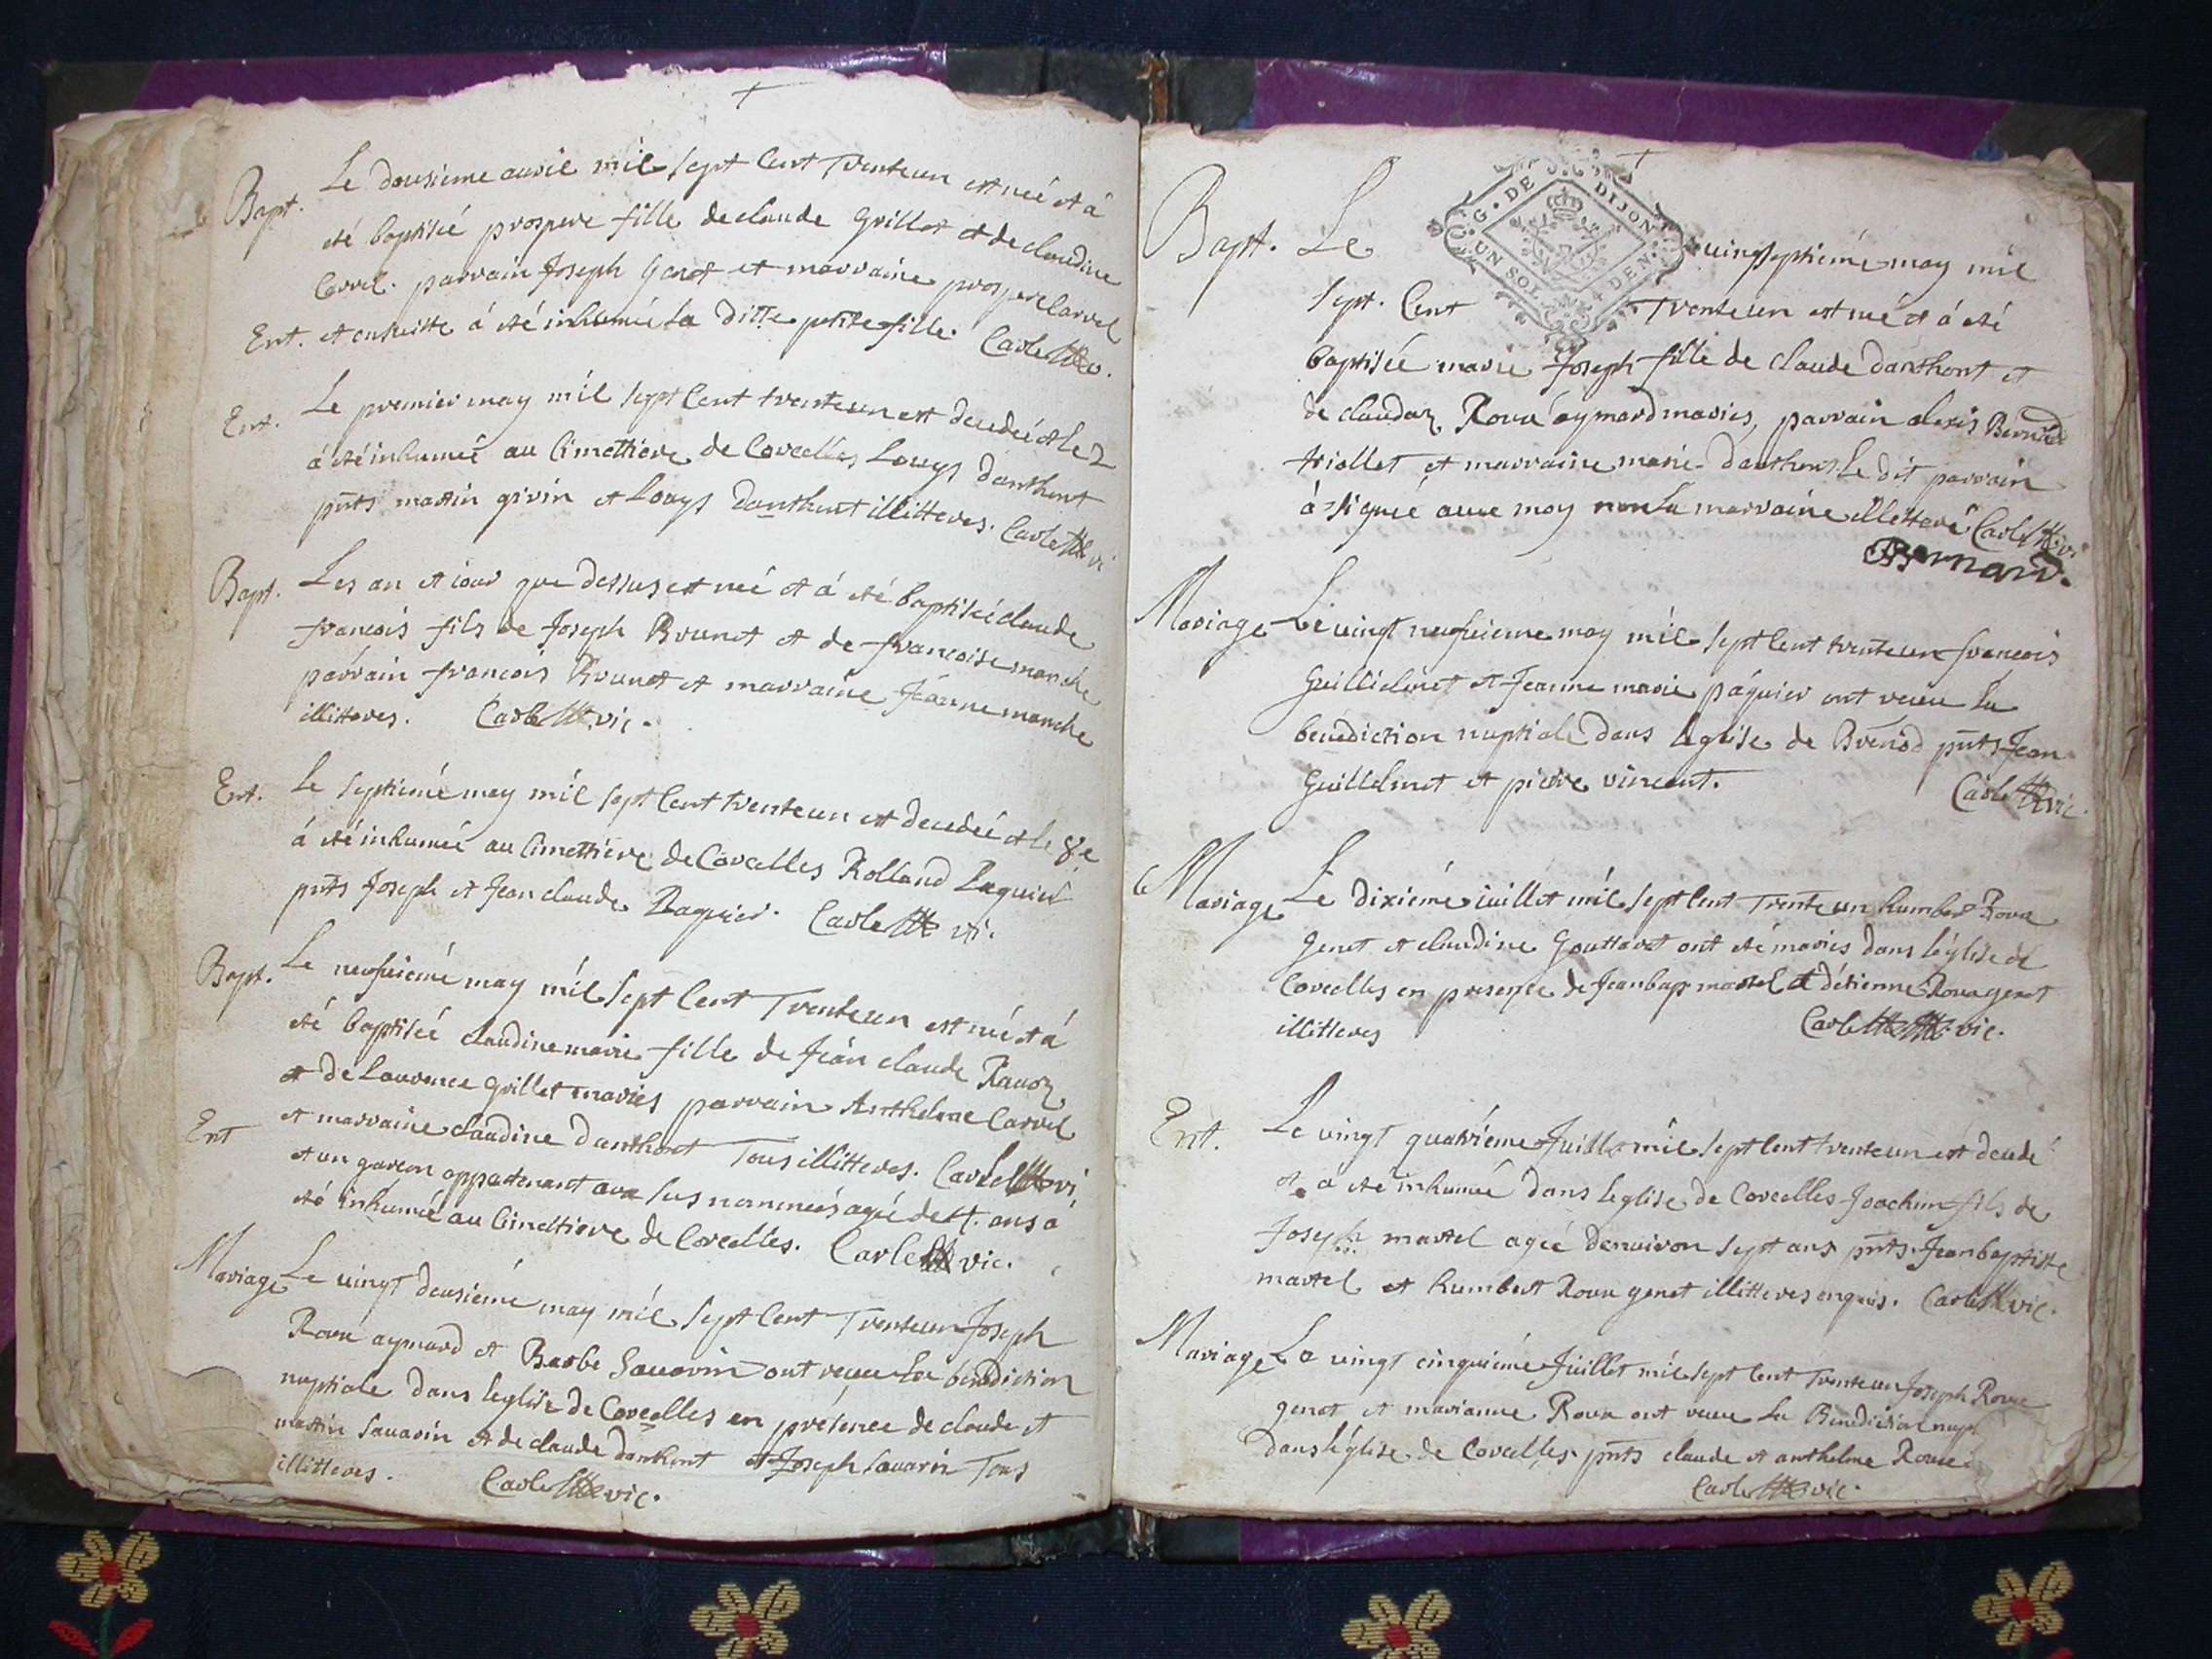 Bapt. Le dousieme avril mil sept cent trenteun est neé et á
eté baptiseé prospere fille de claude Grillet et de claudine
Carrel. parrain Joseph Genet et marraine prospere Carrel
Ent. et ensuitte á eté inhumeé la ditte petite fille. Carle v.
Ent. Le premier may mil sept cent trenteun est decedeé et le 2
á eté inhumeé au Cimettiere de Corcelles Louys danthont
pnts martin girin et Louys Danthont illitteres. Carle vi
Bapt. Les an et iour que dessus est neé et á eté baptiseé claude
francois fils de Joseph Brunet et de francoise marche
parrain francois Brunet et marraine Jeanne marche
illitteres. Carle vic.
Ent. Le septiéme may mil sept cent trenteun est decedeé et le 8e
á eté inhumeé au Cimettiere de Corcelles Rolland Paquier
pnts Joseph et Jean claude Paquier. Carle vi.
Bapt. Le neufuiemé may mil sept cent trenteun est neé et á
eté baptiseé claudine marie fille de Jean claude Ravoz
et de Laurence Grillet mariés parrain Anthelme Carrel
et marraine claudine danthont Tous illitteres. Carle vi
Ent et un garcon appartenant aux sus nommeés ageé de 4. ans á
eté inhumeé au Cimettiere de Corcelles. Carle vic.
Mariage Le uingt deusiémé may mil sept cent trenteun Joseph
Roux aymard et Barbe Sauarin ont reçeu la benediction
nuptiale dans leglise de Corcelles en présence de claude et
martin Sauarin et de claude danthont et Joseph Sauarin Tous
illitteres. Carle vic.
G. G. DE DIJON
UN SOL 4 DEN.
Bapt. Le uingtseptiéme may mil
sept. Cent Trenteun est neé et á eté
baptiseé marie Joseph fille de claude danthont et
de claudaz Roux aymard mariés, parrain alexis Bernard
triollet et marraine marie danthont. Le dit parrain
á signé auec moy non la marraine illitteré Carle vi
Bernard.
Mariage Le uingt neufuieme may mil sept cent trenteun francois
Guillelmet et Jeanne marie páquier ont receu la
benédiction nuptiale dans leglise de Brénod pnts Jean
Guillelmet et pierre uincent.
Carle vic.
Mariage Le dixiéme iuillet mil sept cent Trenteun humbert Roux
genet et claudine Gouttaret ont eté mariés dans léglise de
Corcelles en presence de Jean bap martel et d'étienne Roux genet
illitteres Carle vic.
Ent. Le uingt quatriéme Juillet mil sept cent trenteun est decedé
et a eté inhumeé dans leglise de Corcelles Joachim fils de
Joseph martel ageé denuiron sept ans pnts. Jean baptiste
martel et humbert Roux genet illitteres enquis. Carle vic.
Mariage Le uingt cinquiéme Juillet mil sept cent Trenteun Joseph Roux
genet et marianne Roux ont receu la Benediction nupt
dans léglise de Corcelles pnts claude et anthelme Roux
Carle vic.